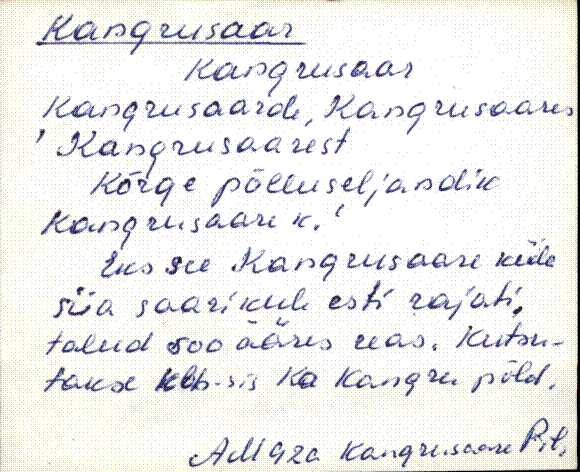 Kangrusaar
Kangrusaar
Kangrusaarde, Kangrusaares
' Kangrusaarest
Kõrge põlluseljandik
Kangrusaare k.'
Eks see Kangrusaare küla
siia saarikule esti rajati,
talud soo ääres reas. Kutsu-
takse ka Kangru põld.
Kangrusaare